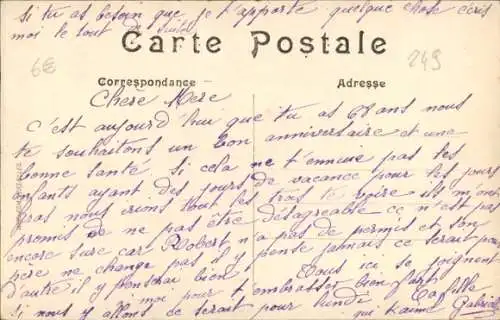 si tu as besoin que je t'apporte quelque chose écris
moi le tout de suite
Carte Postale
6€
249
Correspondance
Adresse
Chère Mère
C'est aujourd'hui que tu as 68 ans nous
te souhaitons un bon anniversaire et une
bonne santé si cela ne t'ennuie pas les
enfants ayant des jours de vacance pour les jours
gras nous irions tout les trois te voire ils m'ont
promis de ne pas être désagréable ce n'est pas
encore sure car Robert n'a pas de permis et son
père ne change pas il y pense jamais ce serait pas
d'autre il y penserai bien Tous ici se joignent
moi pour t'embrasser bien fort
si nous y allons ce serait pour lundi Ta fille
qui t'aime Gabrielle